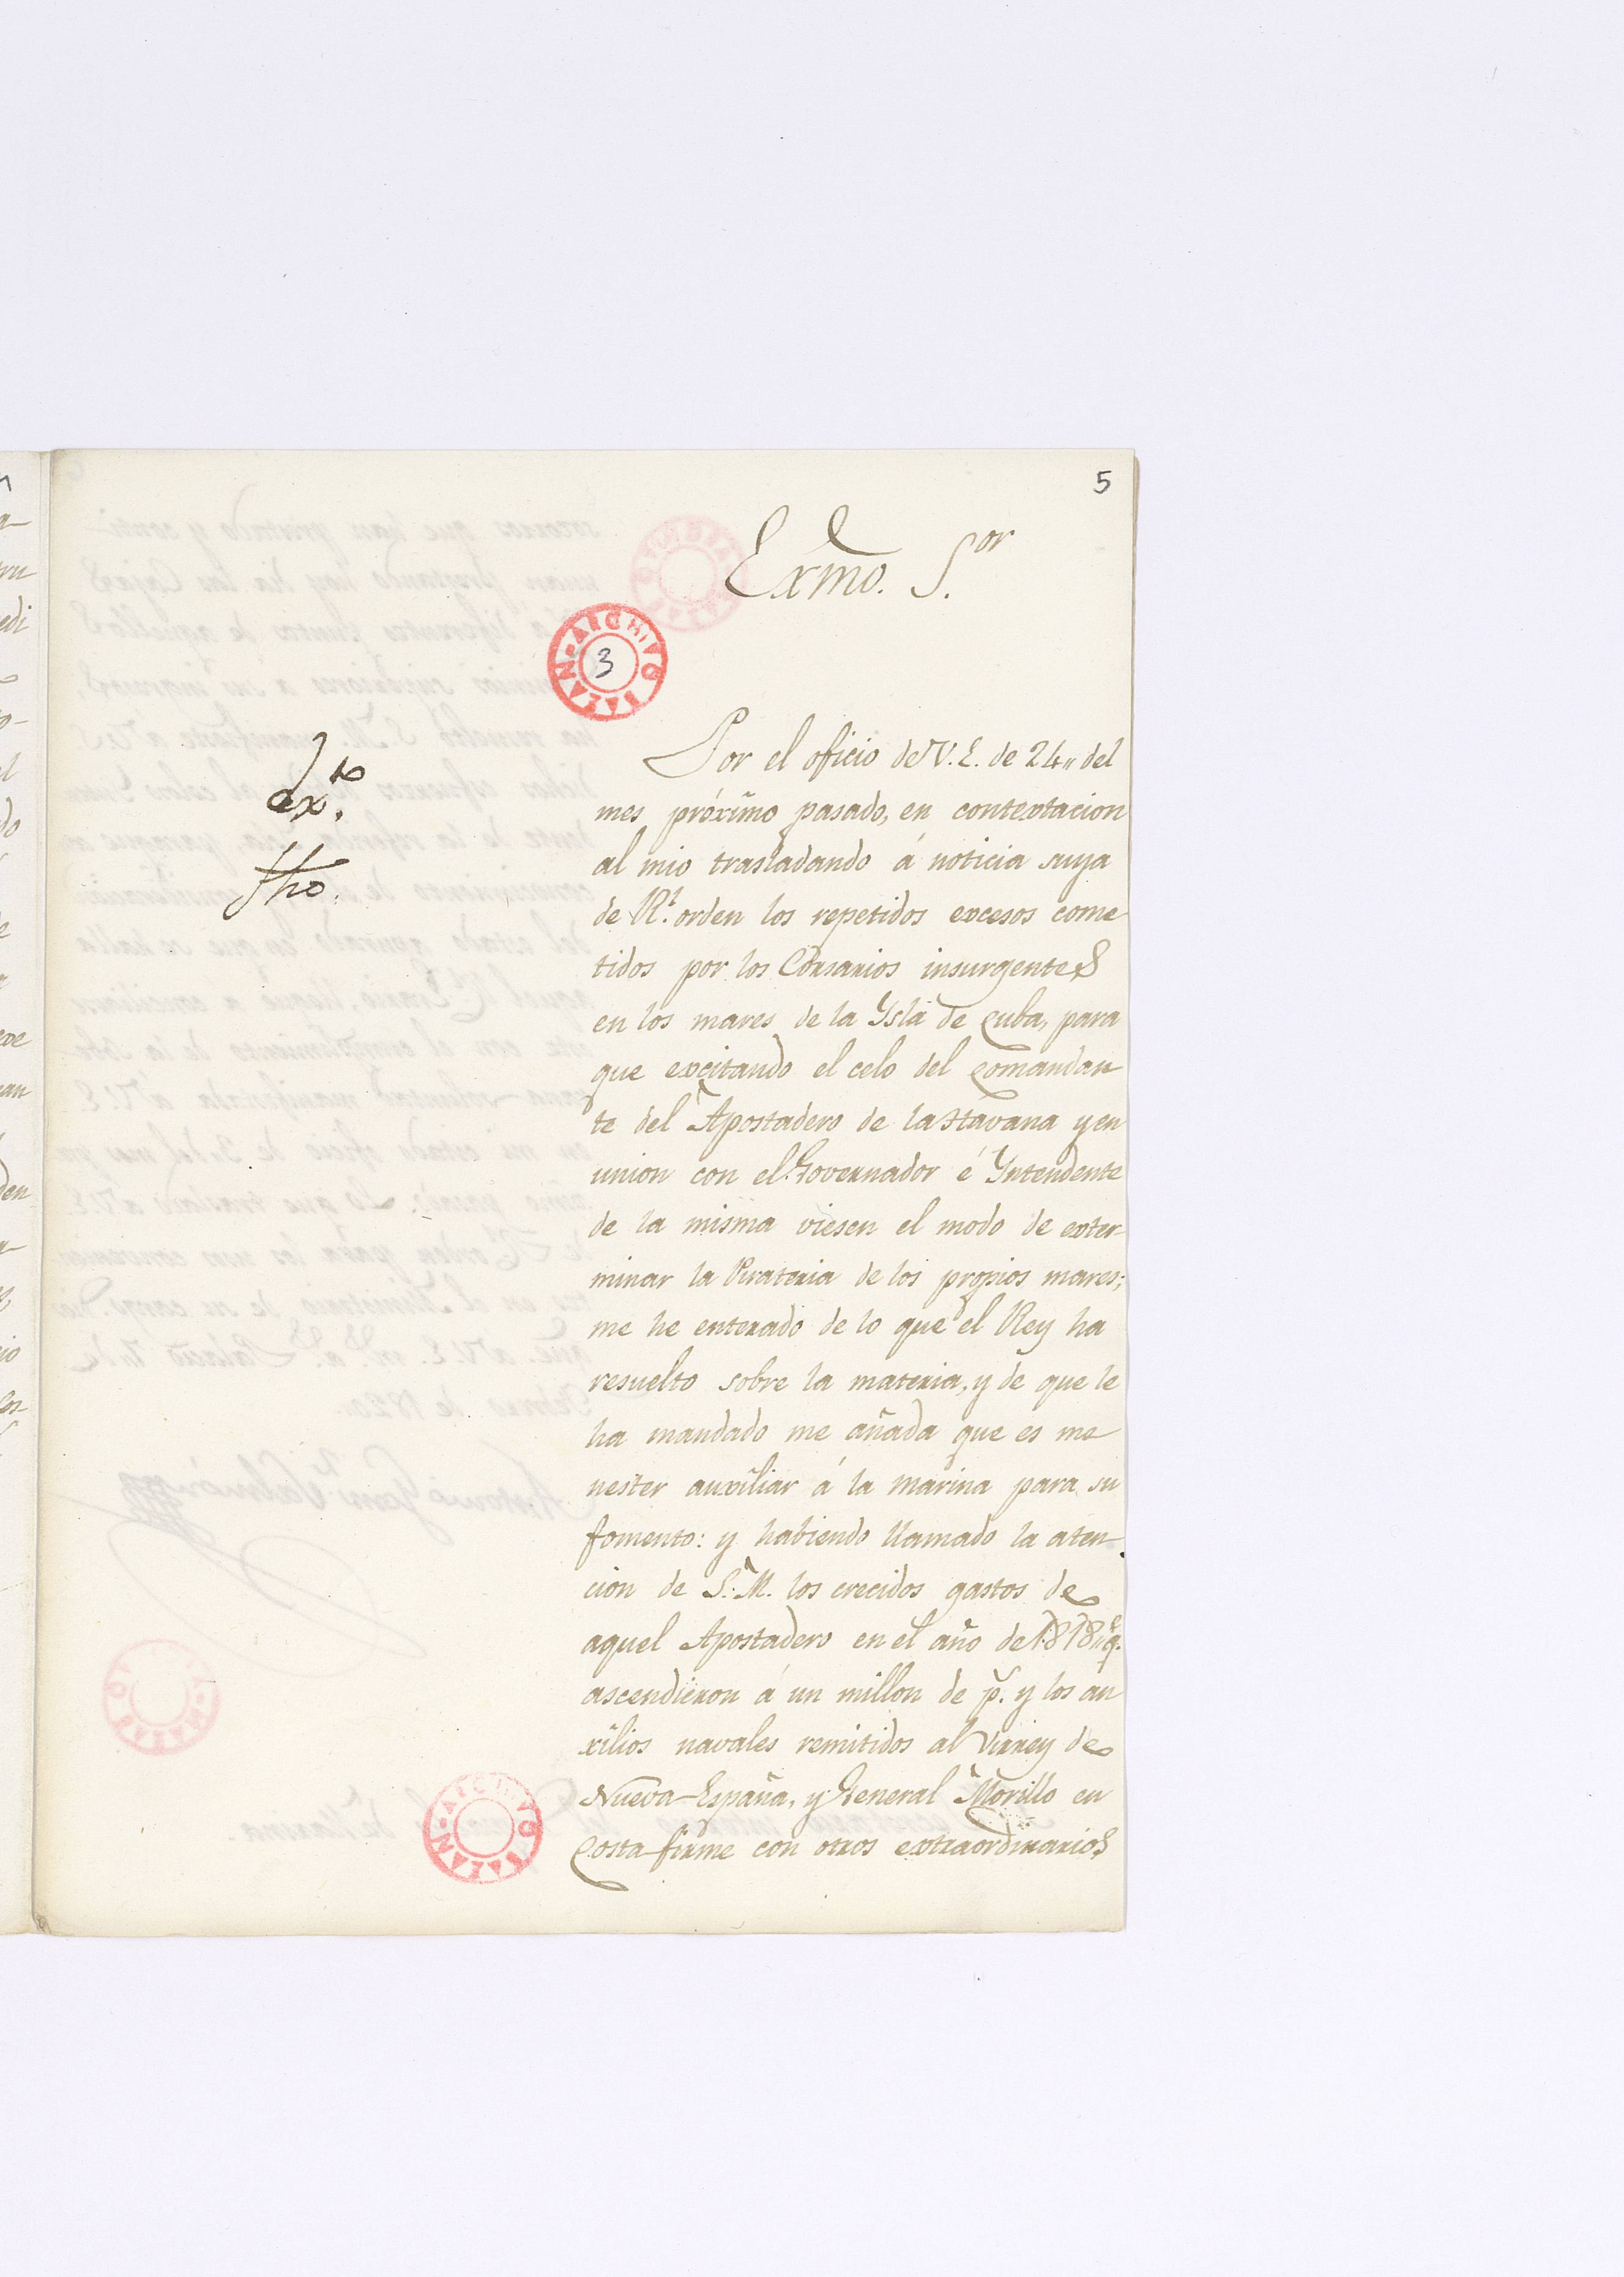 5
Exmo. S.or
ARCHIVO BAZAN
3
ex.to
fho.
Por el oficio de V.E. de 24,, del
mes próximo pasado, en contextacion
al mio trasladando á noticia suya
de R.l orden los repetidos excesos come
tidos por los Corsarios insurgentes
en los mares de la Ysla de Cuba, para
que excitando el celo del Comandan
te del Apostadero de la Havana y en
union con el Governador é Yntendente
de la misma viesen el modo de exter-
minar la Pirateria de los propios mares;
me he enterado de lo que el Rey ha
resuelto sobre la materia, y de que le
ha mandado me añada que es me
nester auxiliar á la marina para su
fomento: y habiendo llamado la aten-
cion de S.M. los crecidos gastos de
aquel Apostadero en el año de 1818,, q.e
ascendieron á un millon de p.s y los au
xilios navales remitidos al Virrey de
Nueva España, y General Morillo en
Costa-firme con otros extraordinarios
ARCHIVO BAZAN